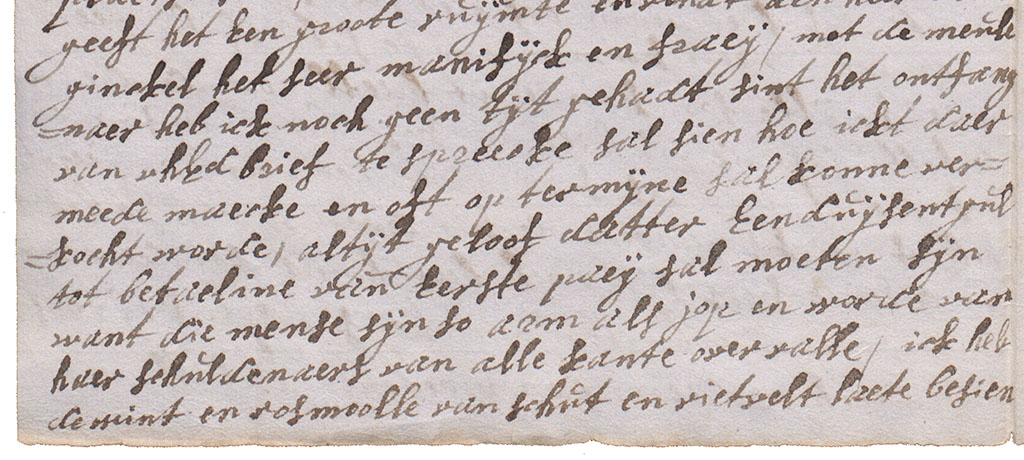 geeft het een groote ruijmte en
ginckel het seer manifijck en fraeij / met de meule
=naer heb ick noch geen tijt gehadt sint het ontfang
van uhEd brief te spreecke sal sien hoe ickt daer
meede maecke en oft op termijne sal konne ver=
=kocht worde, altijt geloof datter Eenduijsent gul
tot betaeline van Eerste paeij sal moeten sijn
want die mense sijn so arm als jop en worde van
haer schuldenaers van alle kante overvalle / ick heb
de wint en rosmoolle van schut en rietvelt laete besien